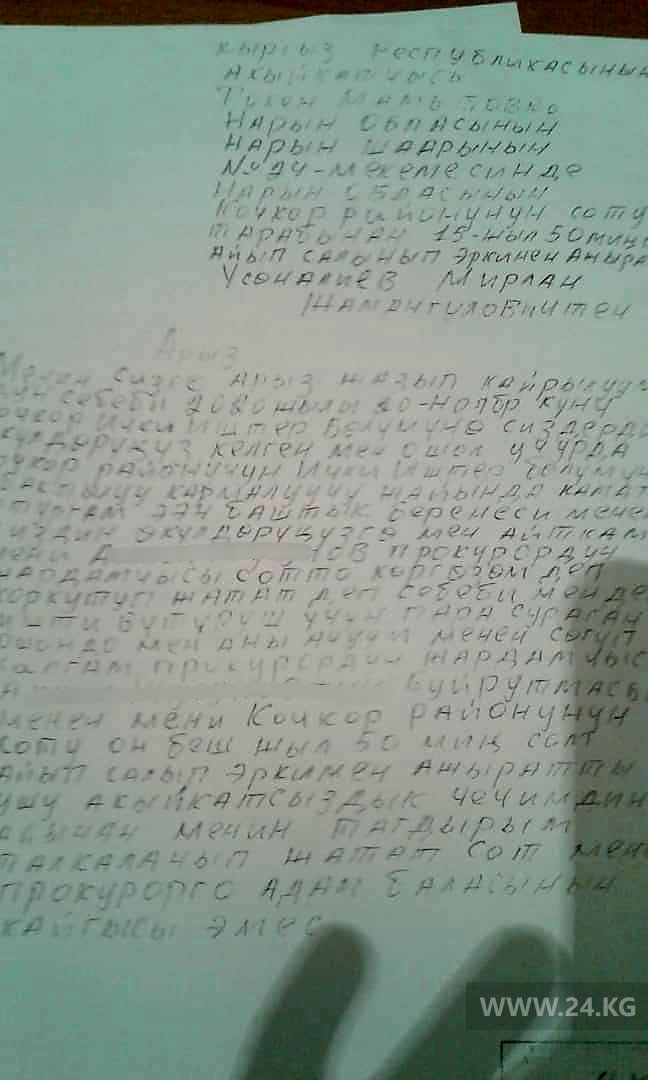 Кыргыз Республикасынын
Акыйкатчысы
Нарын Обласынын
Нарын шаарынын
№24-мекемесинде
Нарын Обласынын
Кочкор районунун соту
тарабынан 15-жыл 50 миң
айып салынып эркинен ажыра
Усоналиев Мирлан
Арыз
Менин сизге арыз жазып кайрылуу
себеби 2020 жылы 20-ноябр күнү
Ички Иштер Бөлүмүнө сиздерди
келген мен ошол учурда
районунун Ички Иштер
кармалуучу жайында камат
274 баштык беренеси менен
сиздин өкүлдөрүңүзгө мен айткам
мени А ов прокурордун
жардамчысы сотто көргөзөм деп
коркутуп жатат деп себеби менде
ишти бүтүрүш үчүн пара сураган
ошондо мен аны ачуум менен сөгүп
калгам прокурордун жардамчыс
А буйрутмасы
менен мени Кочкор районунун
соту он беш жыл 50 миң сом
айып салып эркимен ажыратты
ушу акыйкатсыздык чечимдин
асынан менин тагдырым
талкаланып жатат сот мене
прокурорго адам баласынын
кайгысы эмес
WWW.24.KG